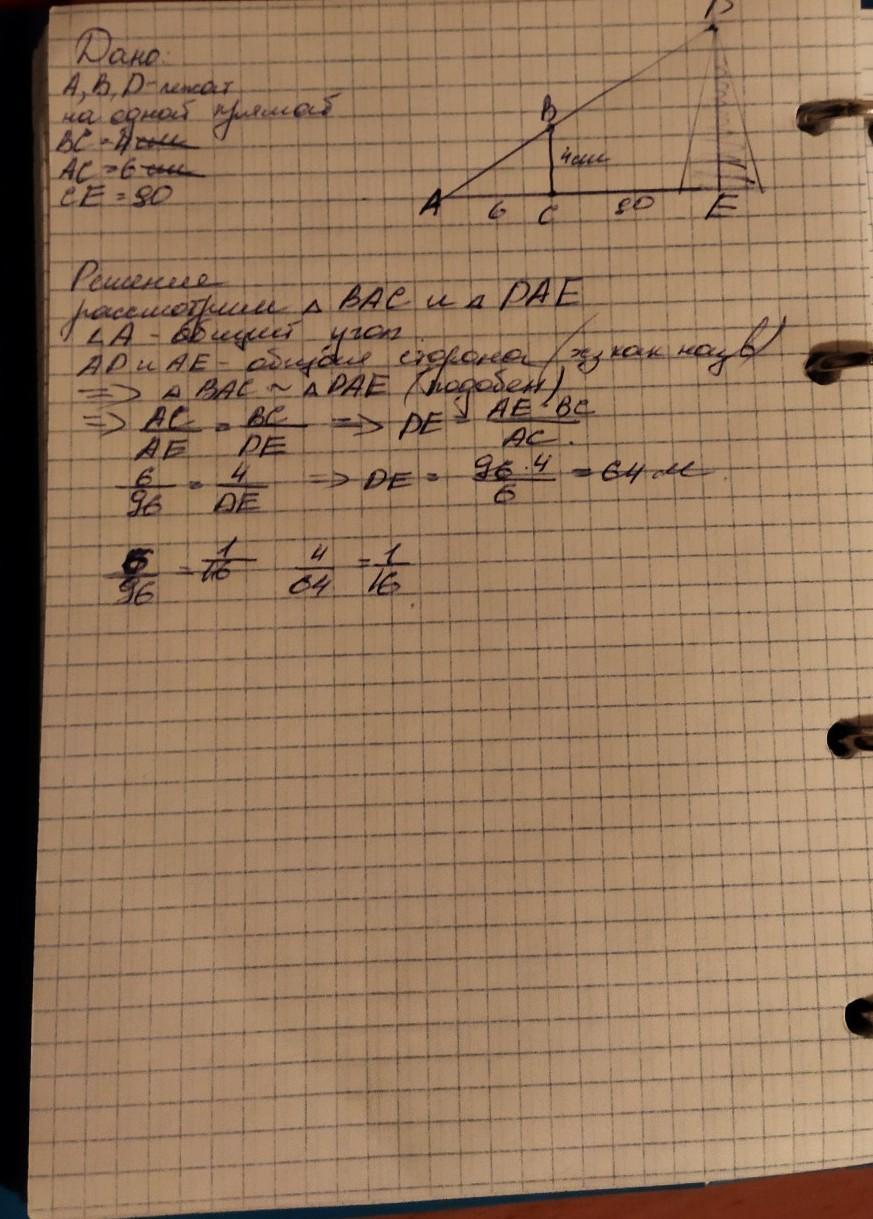 Дано:
A, B, D - лежат
на одной прямой
BC = 4 см
AC = 6 см
CE = 90
B
4 см
A
6
C
90
E
Решение
рассмотрим △ BAC и △ DAE
∠A - общий угол
AD и AE - общая сторона (хз как назв)
=> △ BAC ~ △ DAE (подобен)
=> AC/AE = BC/DE => DE = AE·BC/AC.
6/96 = 4/DE => DE = 96·4/6 = 64 м
6/96 = 1/16 4/64 = 1/16